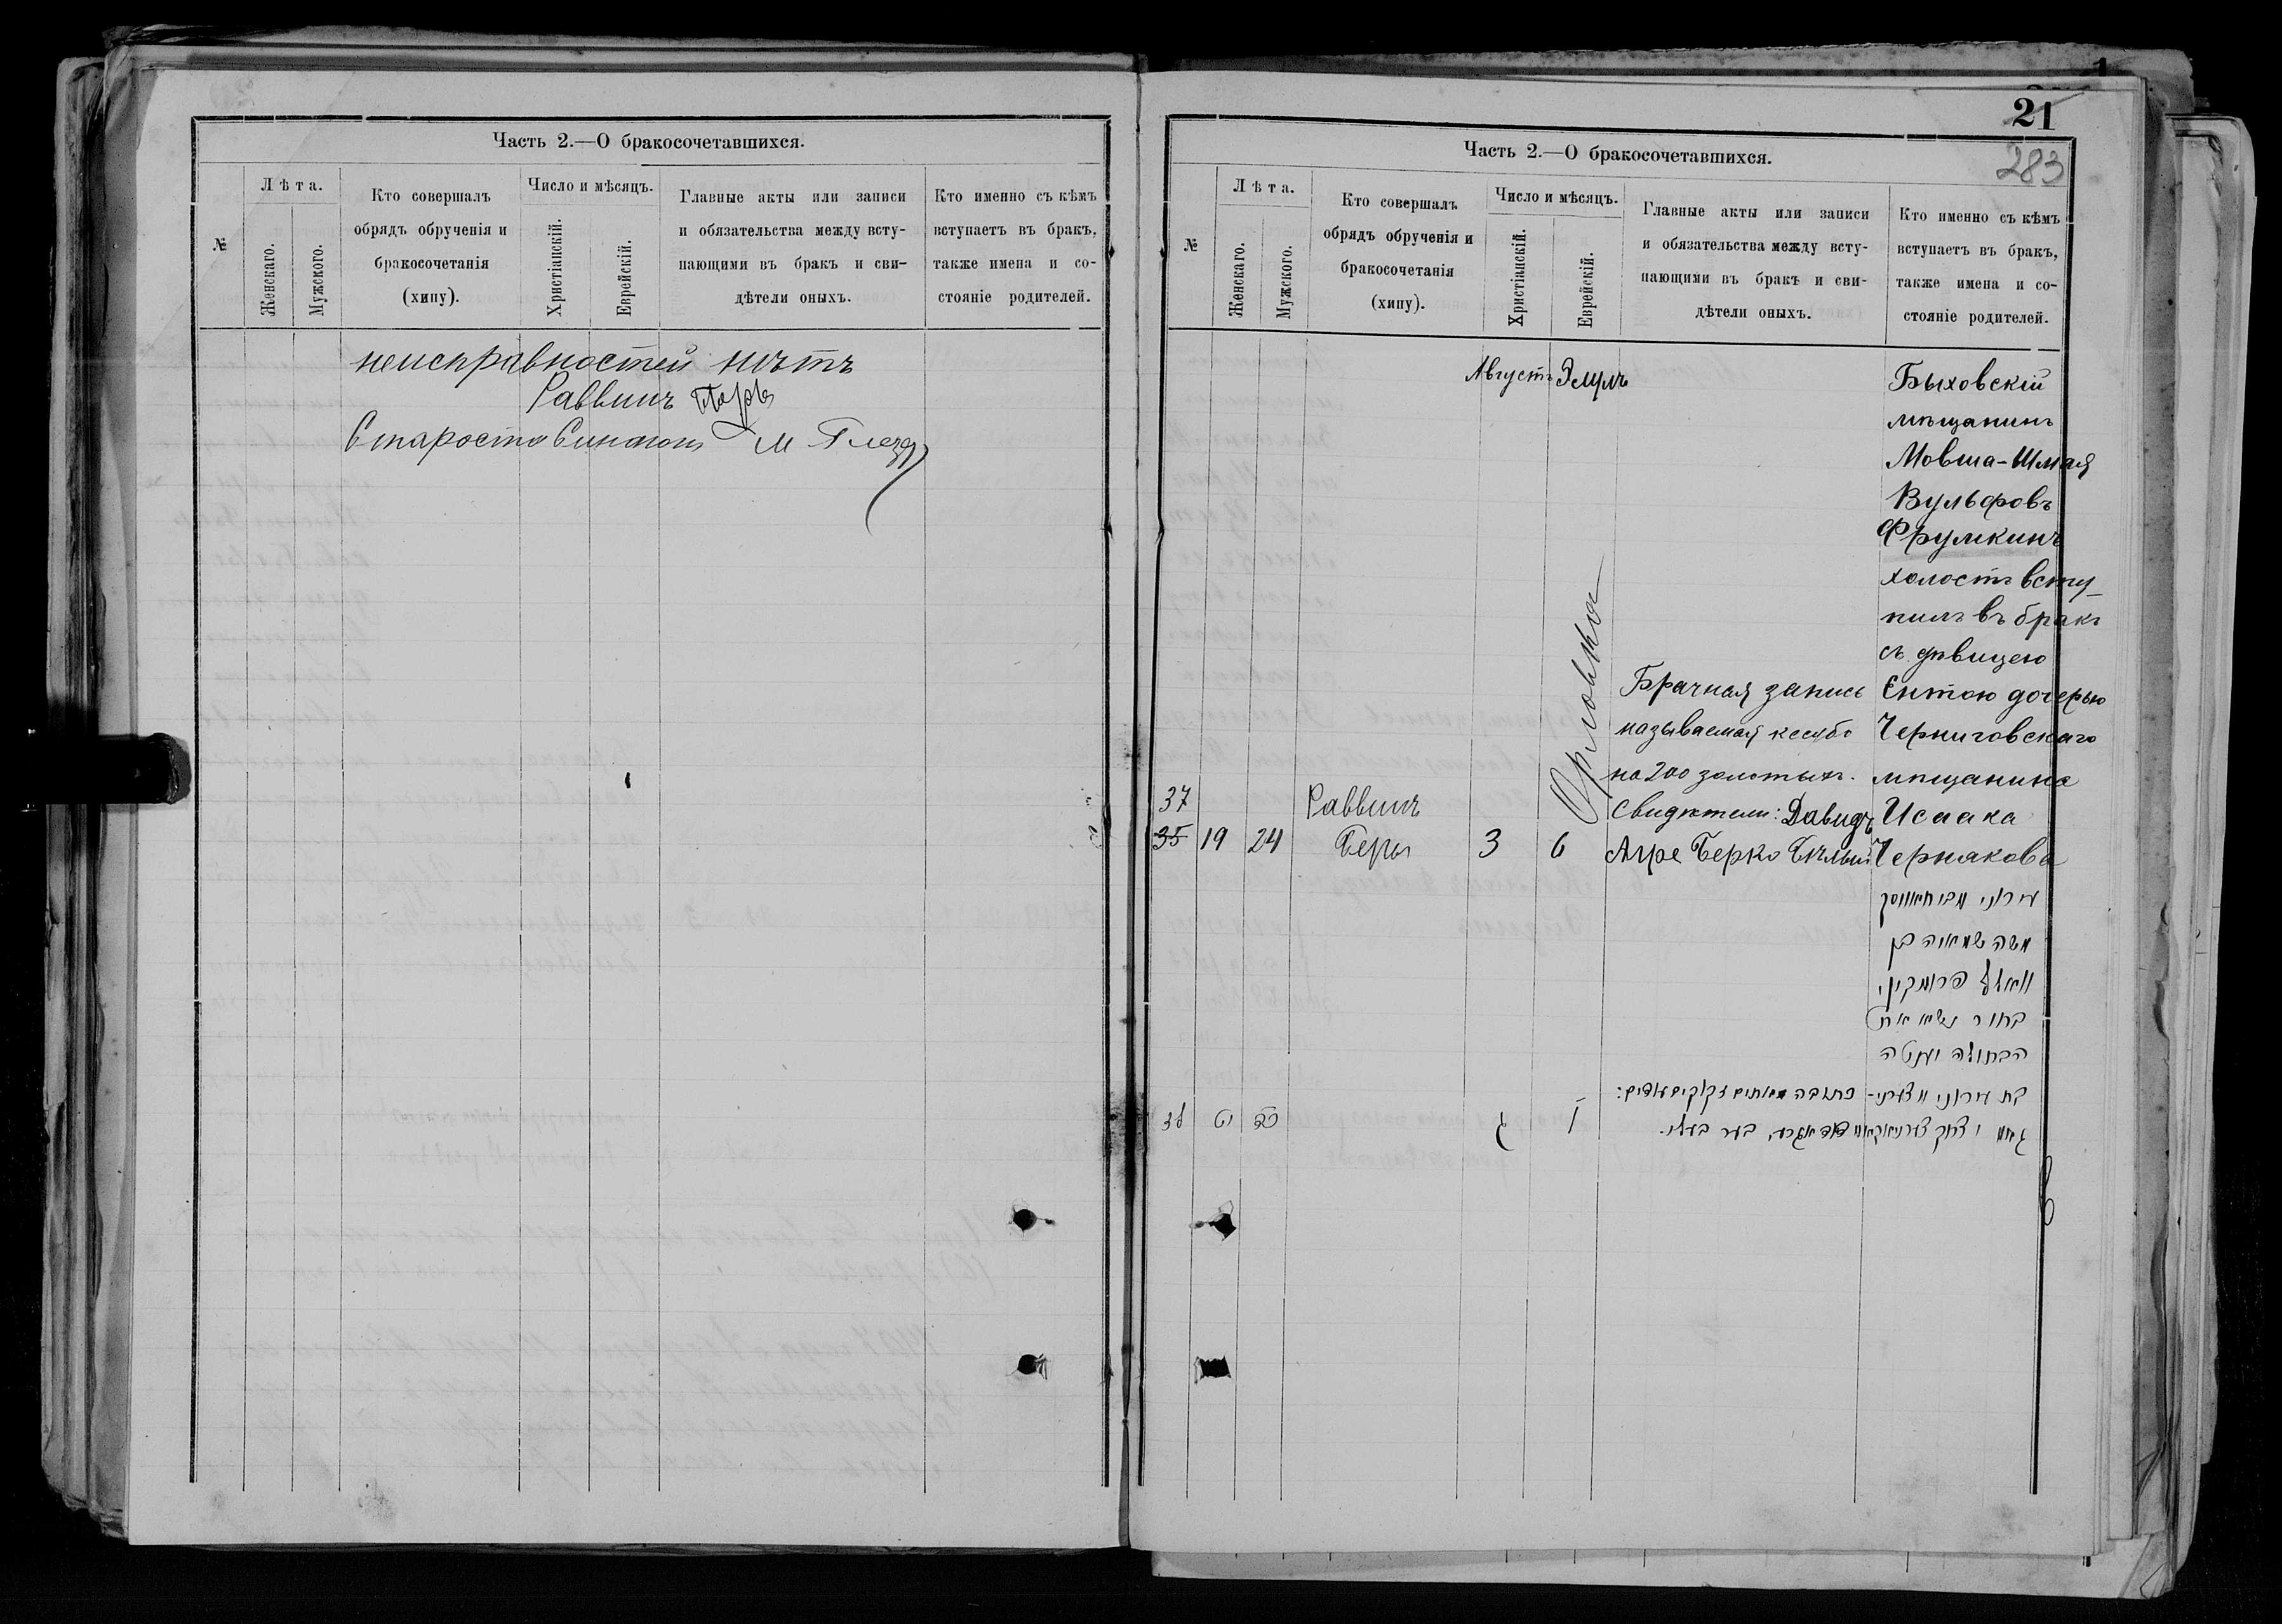 Часть 2.—О бракосочетавшихся.
№
Лѣта.
Женскаго.
Мужского.
Кто совершалъ
обрядъ обрученія и
бракосочетанія
(хипу).
Число и мѣсяцъ.
Христіанскій.
Еврейскій.
Главные акты или записи
и обязательства между всту-
пающими въ бракъ и сви-
дѣтели оныхъ.
Кто именно съ кѣмъ
вступаетъ въ бракъ,
также имена и со-
стояніе родителей.
неисправностей нѣтъ
Раввинъ
Староста М
21
283
Часть 2.—О бракосочетавшихся.
№
Лѣта.
Женскаго.
Мужского.
Кто совершалъ
обрядъ обрученія и
бракосочетанія
(хипу).
Число и мѣсяцъ.
Христіанскій.
Еврейскій.
Главные акты или записи
и обязательства между всту-
пающими въ бракъ и сви-
дѣтели оныхъ.
Кто именно съ кѣмъ
вступаетъ въ бракъ,
также имена и со-
стояніе родителей.
Августъ Элулъ
37
35 19 24
Раввинъ
3 6
Орловка
Брачная запись
называемая кесубо
на 200 золотыхъ.
Свидѣтели: Давидъ
Агре Берко Бѣлый
Быховскій
мѣщанинъ
Мовша-Шмая
Вульфовъ
Фрумкинъ
холостъ всту-
пилъ въ бракъ
съ дѣвицею
Ентою дочерью
Черниговскаго
мѣщанина
Исаака
Чернякова
עירוני
משה שמאיה בן
וואלף פרומקין
בחור נשא את
הבתולה יענטה
בת עירוני
כתובה מאתים זקוקים עדים:
יט כד ג ו